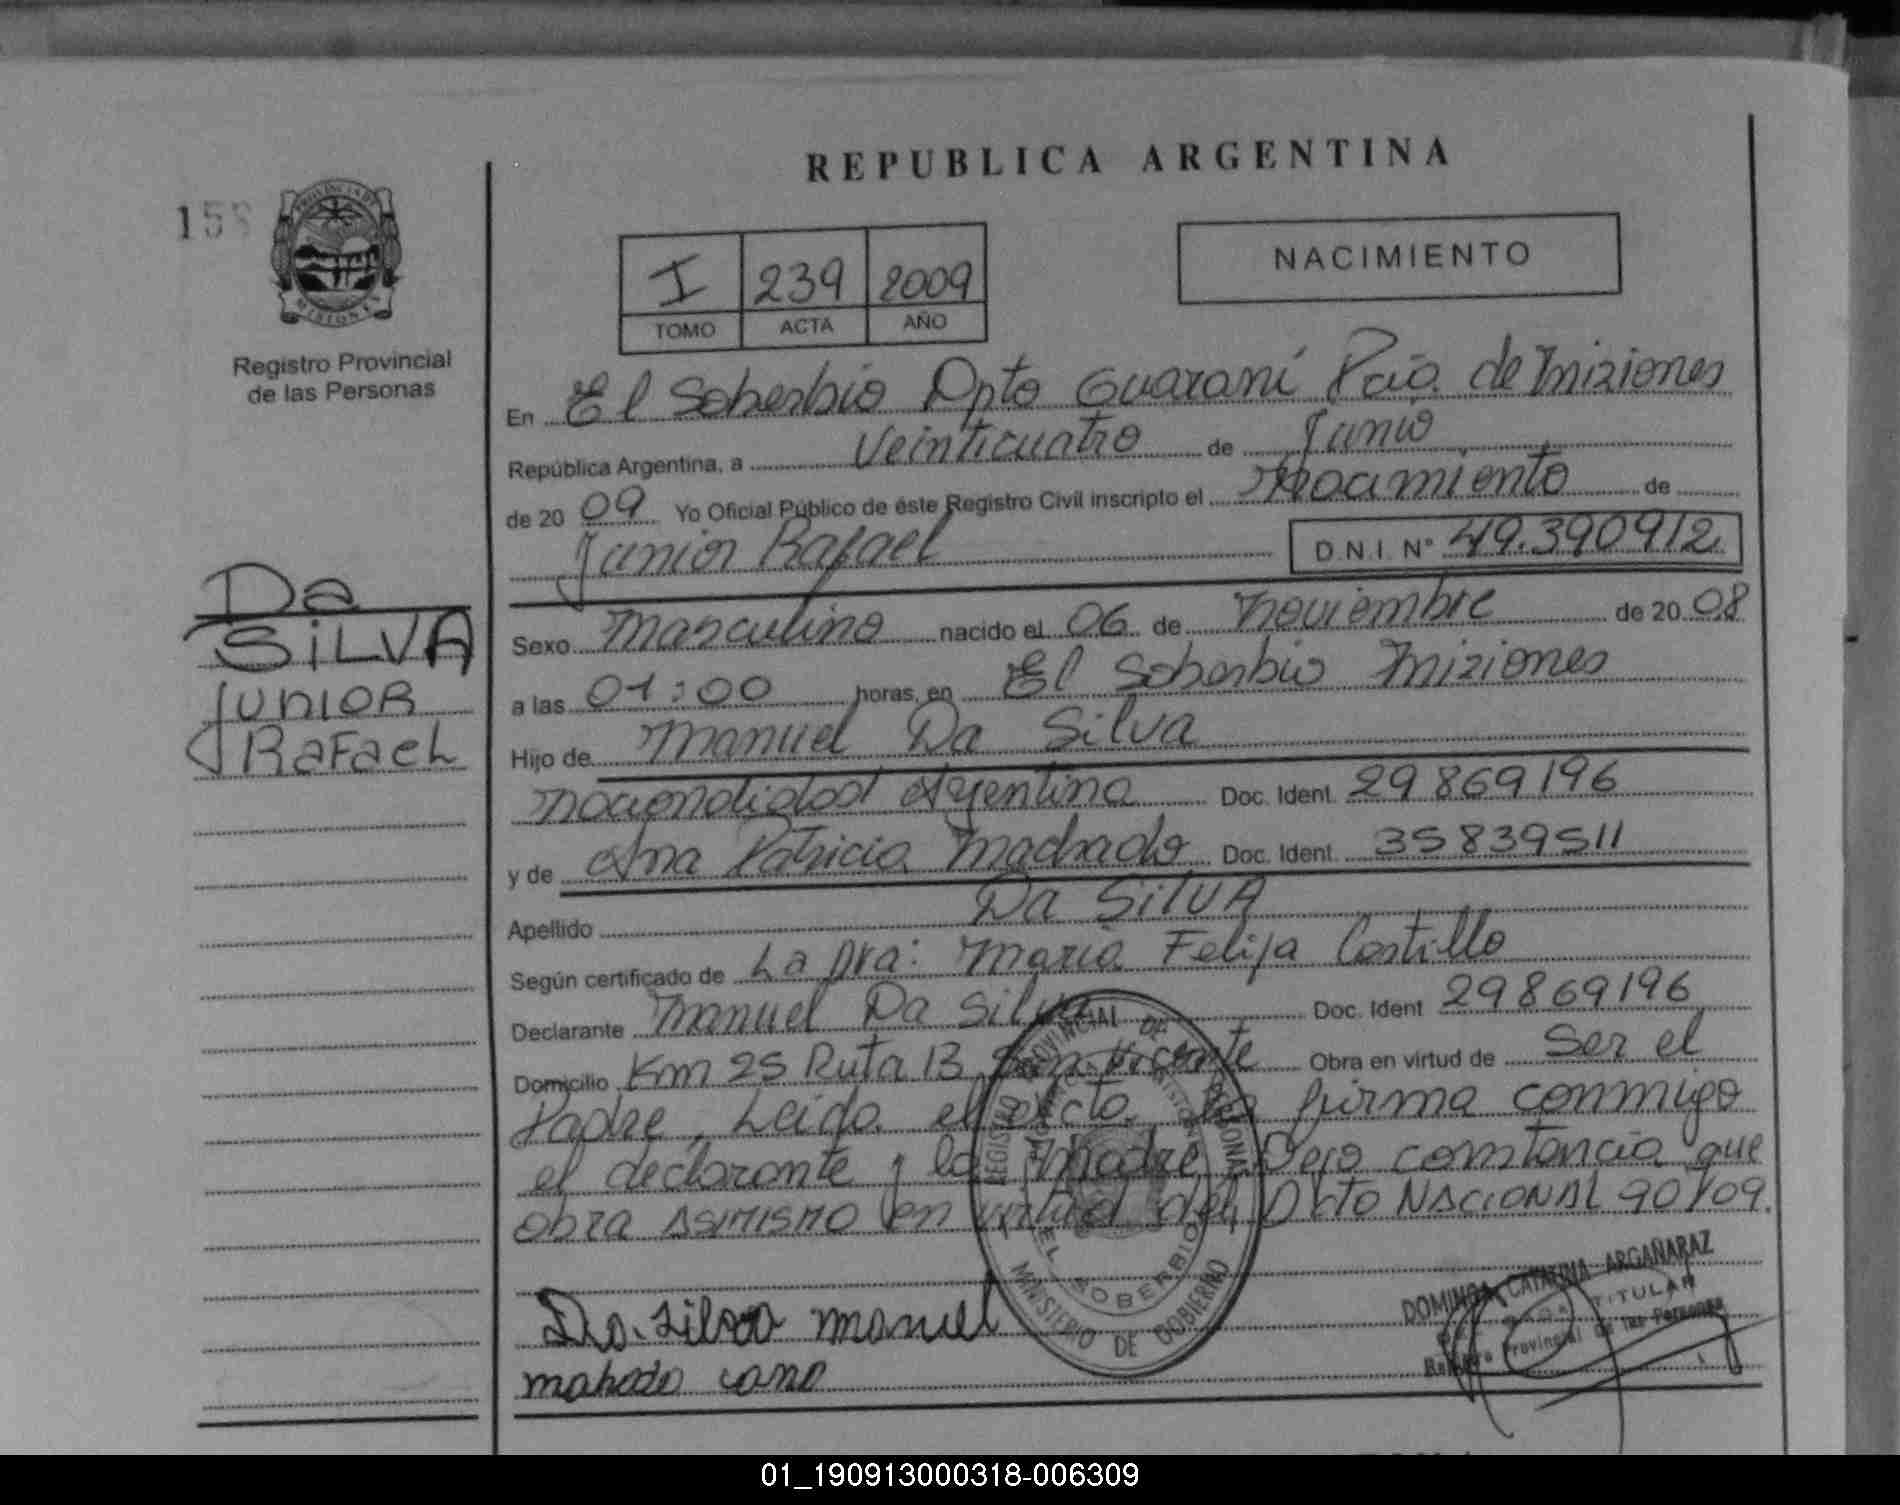 REPUBLICA ARGENTINA
PROVINCIA DE
MISIONES
Registro Provincial
de las Personas
I 239 2009
TOMO ACTA AÑO
NACIMIENTO
En El Soberbio Dpto Guarani Pcia. de Misiones
República Argentina, a Veinticuatro de Junio
de 20 09 Yo Oficial Público de éste Registro Civil inscripto el Nacimiento de
Junior Rafael D.N.I. Nº 49.390912
Da
SiLVA
Junior
RaFaeL
Sexo Masculino nacido el 06 de Noviembre de 20 08
a las 01:00 horas, en El Soberbio Misiones
Hijo de Manuel Da Silva
nacionalidad Argentina Doc. Ident. 29869196
y de Ana Patricia Machado Doc. Ident. 35839511
Apellido Da SilVA
Según certificado de La Dra: Maria Felisa Castillo
Declarante Manuel Da Silva Doc. Ident 29869196
Domicilio Km 25 Ruta 13 San Vicente Obra en virtud de Ser el
Padre, Leida el acta, la firma conmigo
el declarante y la Madre, Dejo constancia que
obra ASIMISMO en virtud del Dto NACIONAL 90/09.
REGISTRO PROVINCIAL DE LAS PERSONAS
EL SOBERBIO
MINISTERIO DE GOBIERNO
Da. Silva manuel
DOMINGA CATALINA ARGAÑARAZ
TITULAR
Registro Provincial de las Personas
01_190913000318-006309